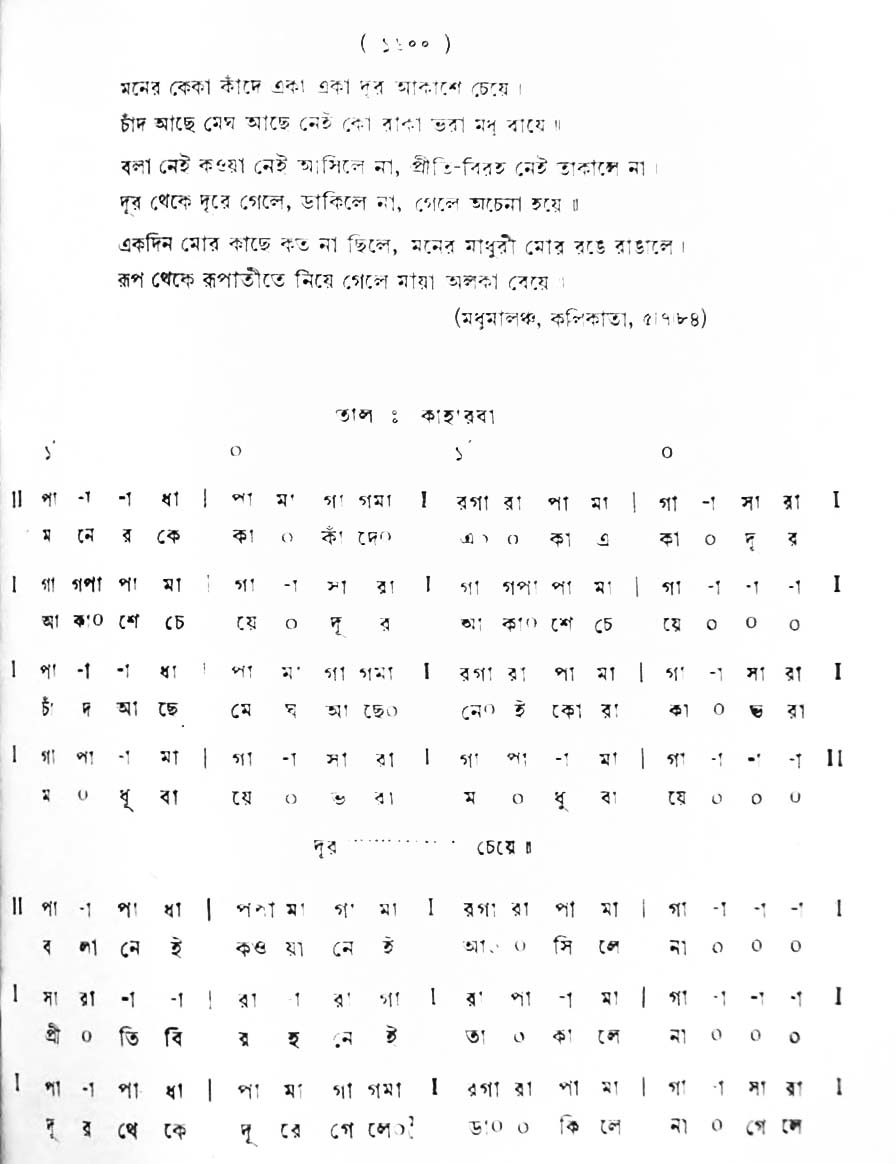 ( ১১০০ )
মনের কেকা কাঁদে একা একা দূর আকাশে চেয়ে ।
চাঁদ আছে মেঘ আছে নেই কো রাকা ভরা মধু বায়ে ॥
বলা নেই কওয়া নেই আসিলে না, প্রীতি-বিরহ নেই তাকালে না ।
দূর থেকে দূরে গেলে, ডাকিলে না, গেলে অচেনা হয়ে ॥
একদিন মোর কাছে কত না ছিলে, মনের মাধুরী মোর রঙে রাঙালে ।
রূপ থেকে রূপাতীতে নিয়ে গেলে মায়া অলকা বেয়ে ।
(মধুমালঞ্চ, কলিকাতা, ৫।৭।৮৪)
তাল : কাহা'রবা
১´ ০ ১´ ০
II পা -া -া ধা | পা মা গা গমা I রগা রা পা মা | গা -া সা রা I
ম নে র কে কা ০ কাঁ দে০ এ০ ০ কা এ কা ০ দূ র
I গা গপা পা মা | গা -া সা রা I গা গপা পা মা | গা -া -া -া I
আ কা০ শে চে য়ে ০ দূ র আ কা০ শে চে য়ে ০ ০ ০
I পা -া -া ধা | পা মা গা গমা I রগা রা পা মা | গা -া সা রা I
চাঁ দ আ ছে মে ঘ আ ছে০ নে০ ই কো রা কা ০ ভ রা
I গা পা -া মা | গা -া সা রা I গা পা -া মা | গা -া -া -া II
ম ০ ধু বা য়ে ০ ভ রা ম ০ ধু বা য়ে ০ ০ ০
দূর ············ চেয়ে ॥
II পা -া পা ধা | মা গা মা I রগা রা পা মা | গা -া -া -া I
ব লা নে ই কও য়া নে ই আ০ ০ সি লে না ০ ০ ০
I সা রা -া -া | রা -া রা গা I রা পা -া মা | গা -া -া -া I
প্রী ০ তি বি র হ নে ই তা ০ কা লে না ০ ০ ০
I পা -া পা ধা | পা মা গা গমা I রগা রা পা মা | গা -া সা রা I
দূ র থে কে দূ রে গে লে০ ডা০ ০ কি লে না ০ গে লে